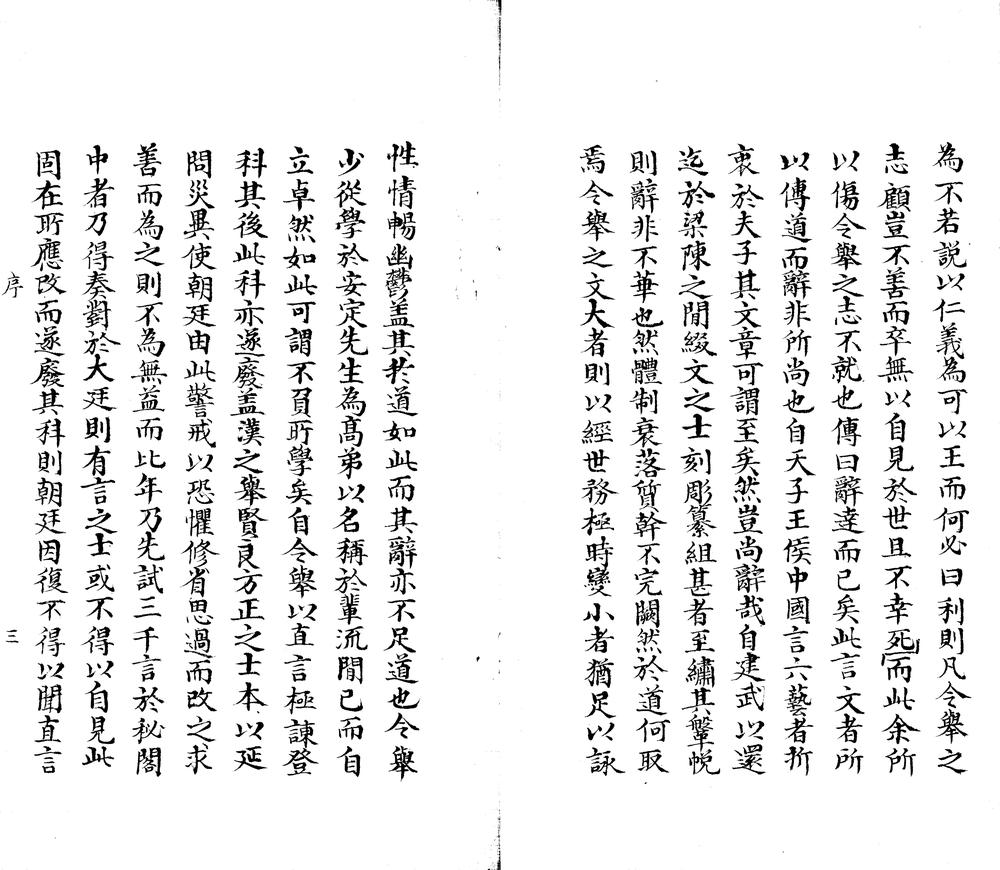 為不若説以仁義為可以王而何必曰利則凡令舉之
志顧豈不善而卒無以自見於世且不幸死而此余所
以傷令舉之志不就也傳曰辭達而已矣此言文者所
以傳道而辭非所尚也自天子王侯中國言六藝者折
衷於夫子其文章可謂至矣然豈尚辭哉自建武以還
迄於梁陳之閒綴文之士刻彫纂組甚者至繡其鞶帨
則辭非不華也然體制衰落質幹不完闕然於道何取
焉令舉之文大者則以經世務極時變小者猶足以詠
性情暢幽鬱盖其扵道如此而其辭亦不足道也令舉
少從學於安定先生為髙弟以名稱於輩流閒已而自
立卓然如此可謂不負所學矣自令舉以直言極諫登
科其後此科亦遂廢盖漢之舉賢良方正之士本以延
問災異使朝廷由此警戒以恐懼修省思過而改之求
善而為之則不為無益而比年乃先試三千言於秘閣
中者乃得奏對於大廷則有言之士或不得以自見此
固在所應改而遂廢其科則朝廷因復不得以聞直言
序
三